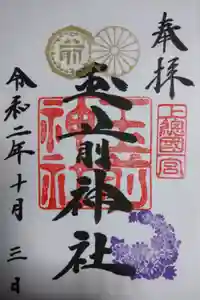 奉拝
上總國一宮
玉前神社
玉前
神社
令和二年十月三日